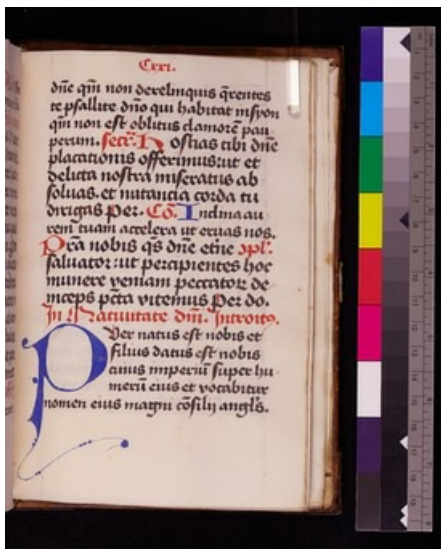 Cxxi.
dñe qm̃ non derelinquis q̃rentes
te psallite dño qui habitat insyon
qm̃ non est oblitus clamorẽ pau
perum. Secr̃. Hostias tibi dñe
placationis offerimus: ut et
delicta nostra miseratus ab
soluas. et nutantia corda tu
dirigas Per. Cõ. Inclina au
rem tuam accelera ut eruas nos.
Pra nobis q̃s dñe etñe ɔpl'.
saluator: ut percipientes hoc
munere veniam peccator̃ de
inceps pc̃ta vitemus Per do.
In Natiuitate dñi. Introitꝰ.
Puer natus est nobis et
filius datus est nobis
cuius imperiũ super hu
merũ eius et vocabitur
nomen eius magni cõsilij angl's.